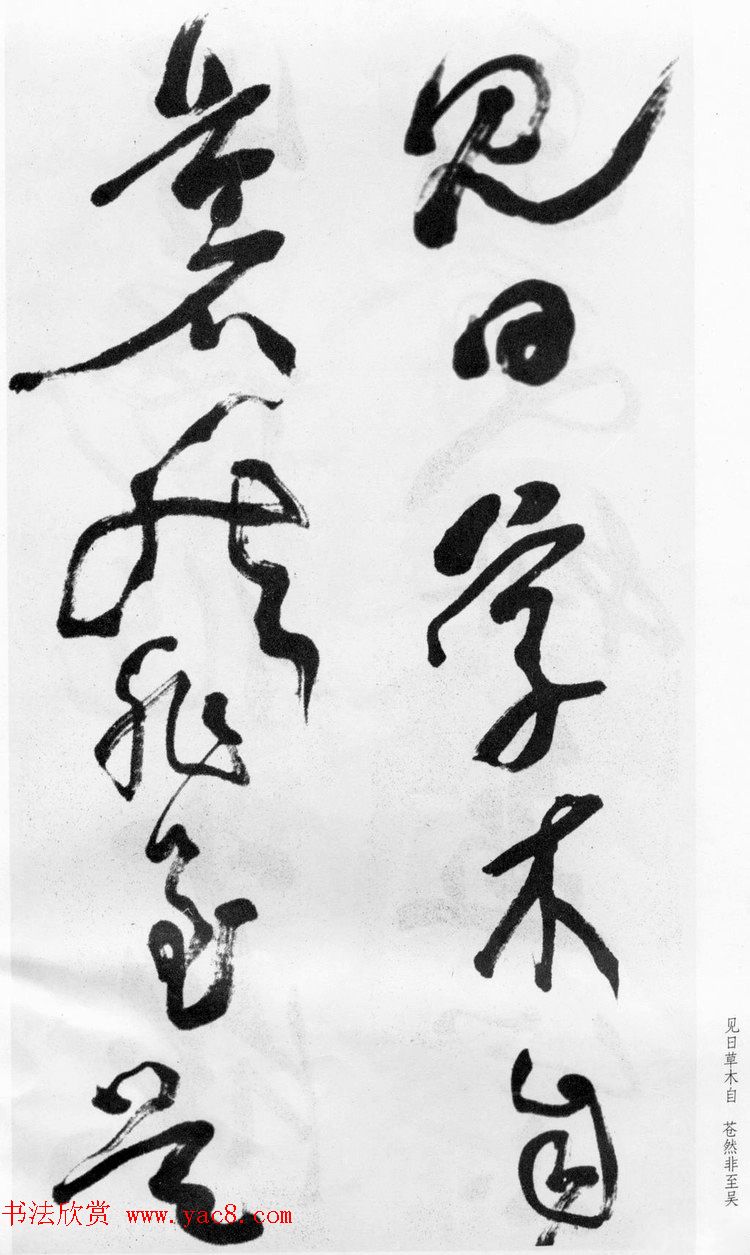 见日草木自
苍然非至吴
见日草木自 苍然非至吴
书法欣赏 www.yac8.com